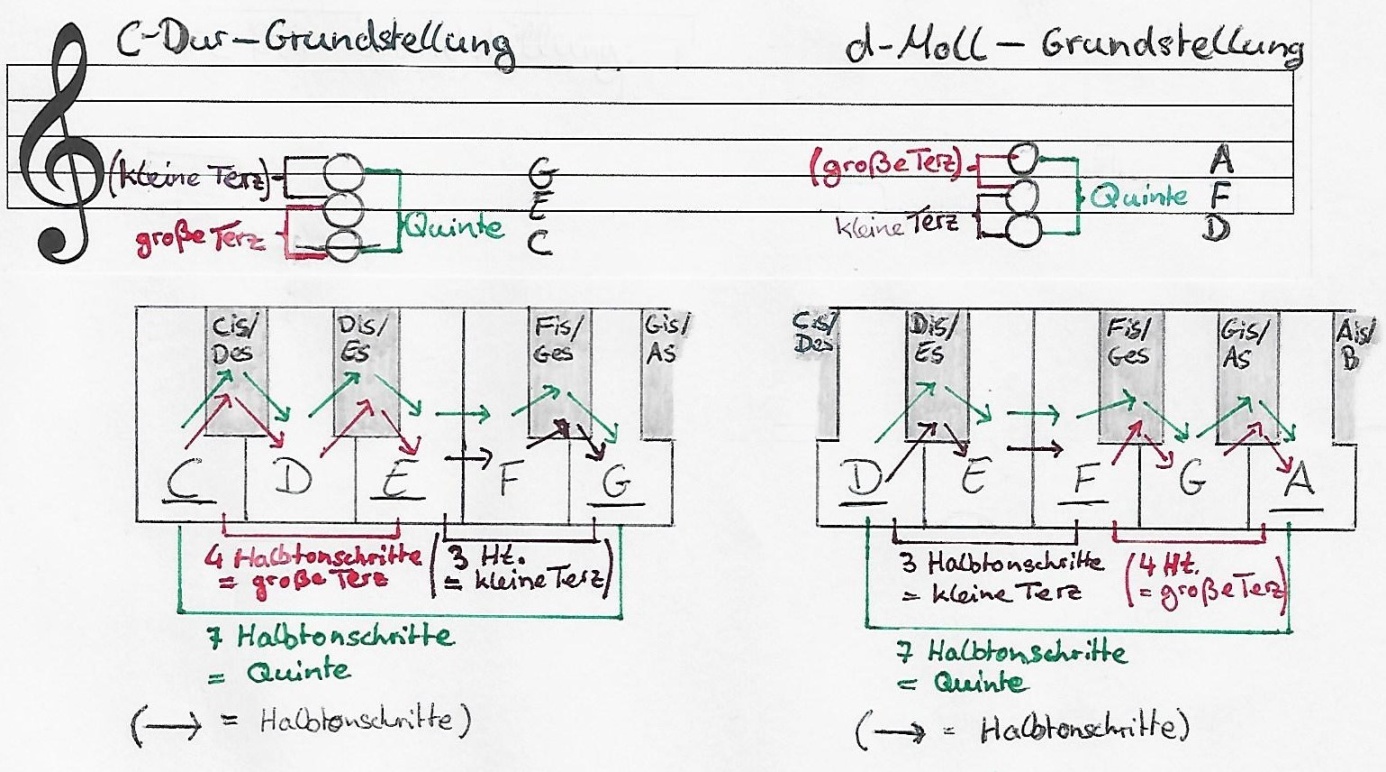 C-Dur-Grundstellung
(kleine Terz)
große Terz
Quinte
G
E
C
Cis/
Des
Dis/
Es
Fis/
Ges
Gis/
As
C D E F G
4 Halbtonschritte
= große Terz
(3 Ht.
= kleine Terz)
7 Halbtonschritte
= Quinte
(→ = Halbtonschritte)
d-Moll - Grundstellung
(große Terz)
kleine Terz
Quinte
A
F
D
Cis/
Des
Dis/
Es
Fis/
Ges
Gis/
As
Ais/
B
D E F G A
3 Halbtonschritte
= kleine Terz
(4 Ht.
= große Terz)
7 Halbtonschritte
= Quinte
(→ = Halbtonschritte)